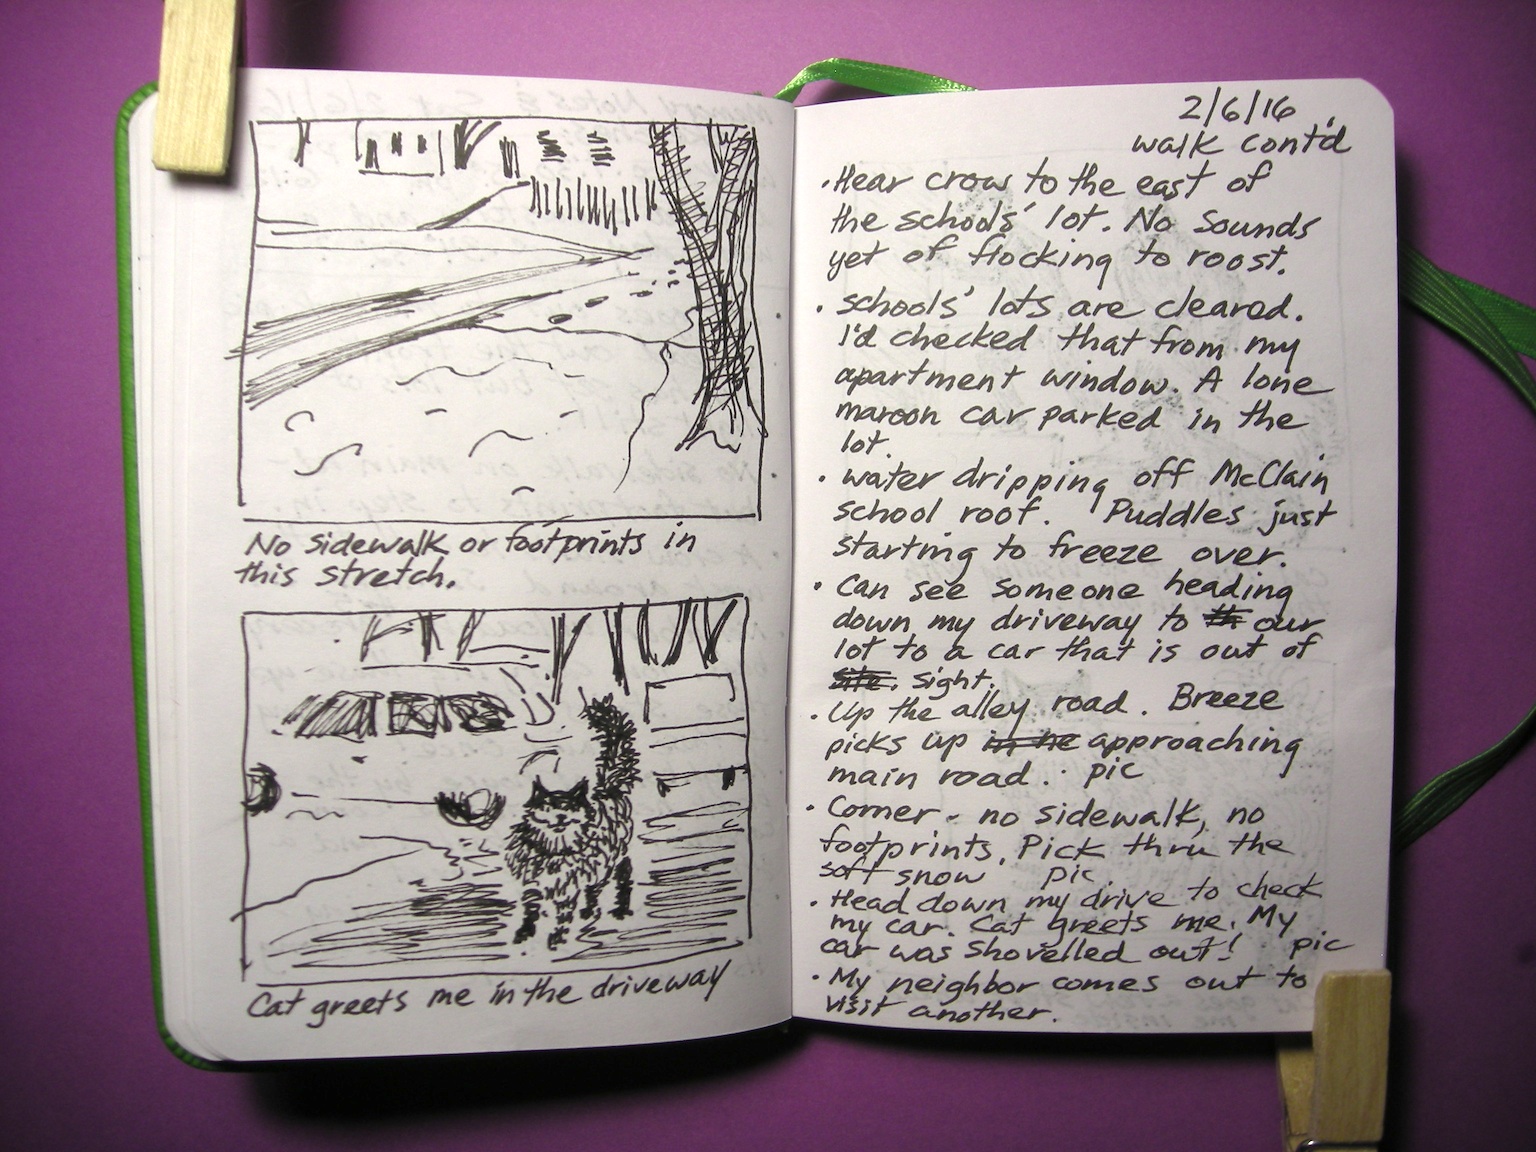 No sidewalk or footprints in
this stretch.
Cat greets me in the driveway
2/6/16
walk cont'd
• Hear crow to the east of
the schools' lot. No sounds
yet of flocking to roost.
• schools' lots are cleared.
I'd checked that from my
apartment window. A lone
maroon car parked in the
lot.
• water dripping off McClain
school roof. Puddles just
starting to freeze over.
• Can see someone heading
down my driveway to our
lot to a car that is out of
site. sight.
• Up the alley road. Breeze
picks up approaching
main road. pic
• Corner - no sidewalk, no
footprints. Pick thru the
soft snow pic
• Head down my drive to check
my car. Cat greets me. My
car was shovelled out! pic
• My neighbor comes out to
visit another.